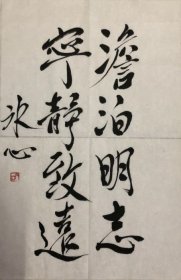 澹泊明志
寧静致遠
冰心